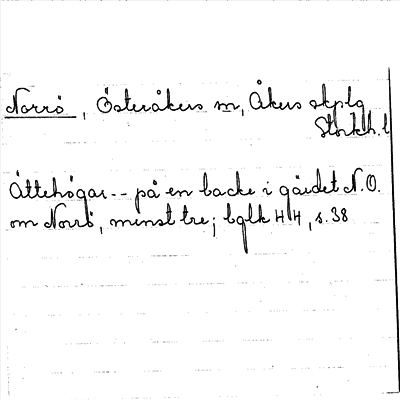 Norrö, Österåkers sn, Åkers skplg
Stockh. l
Ättehögar -- på en backe i gärdet N.O.
om Norrö, minst tre; bglk H4, s. 38